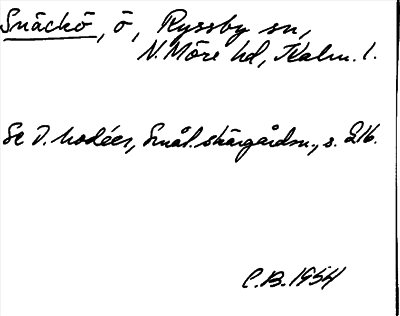 Snäckö, ö, Ryssby sn,
N. Möre hd, Kalm. l.
Se D. Modéer, Smål. skärgårdsn., s. 216.
C.B. 1954